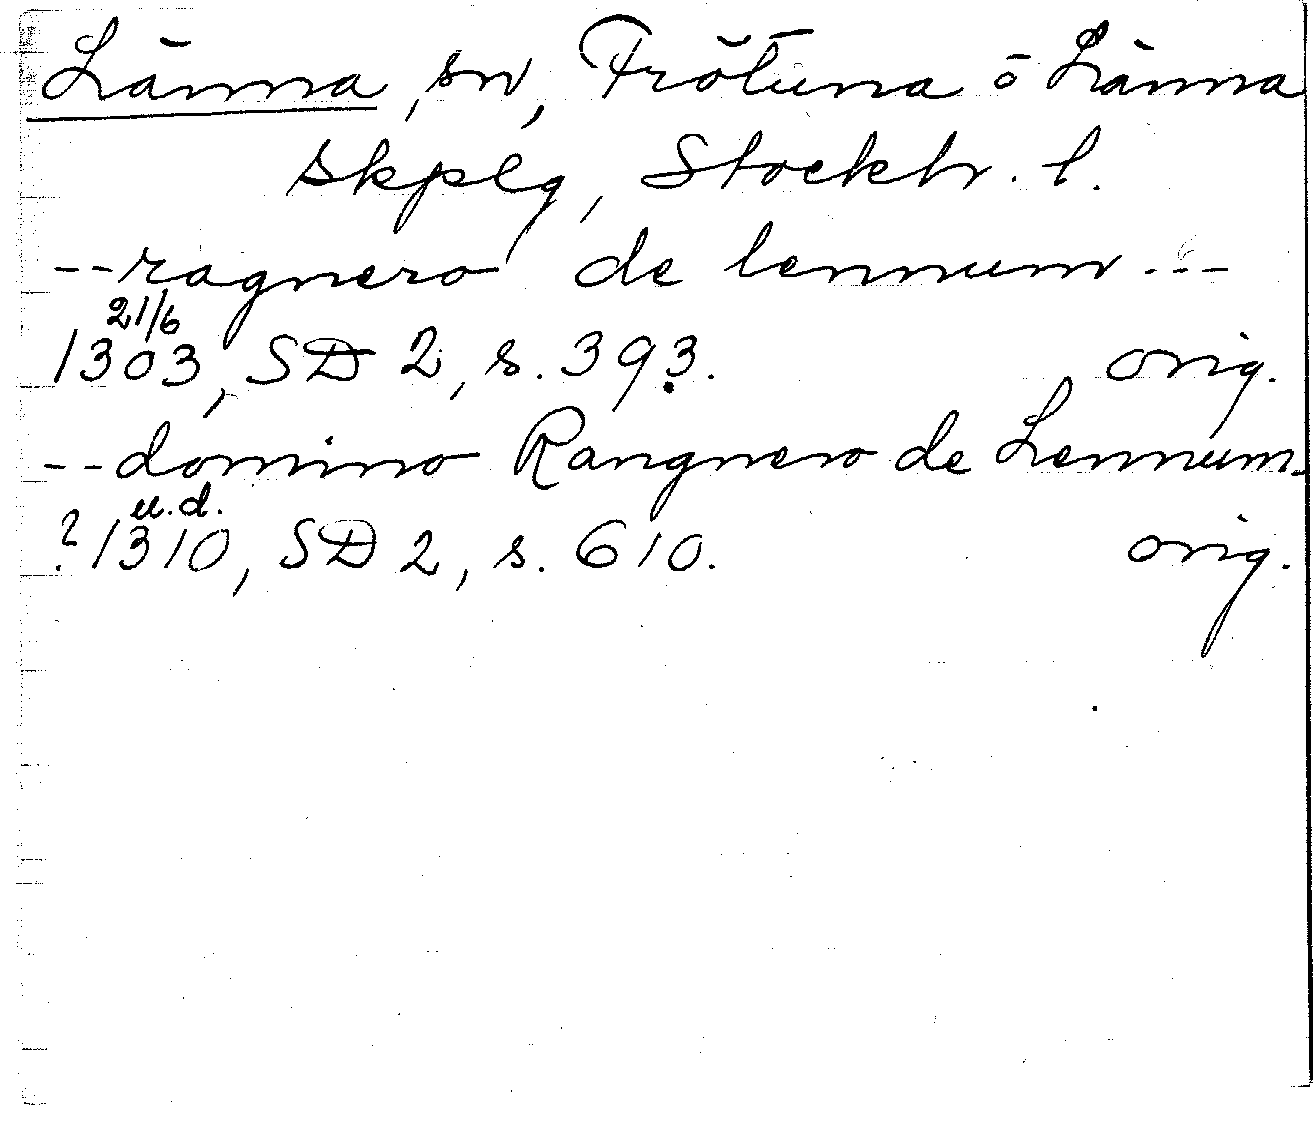 Länna, sn, Frötuna o Länna
skplg, Stockh. l.
--ragnero de lennum---
21/6
1303, SD 2, s. 393. orig.
--domino Rangnero de Lennum-
u.d.
?1310, SD 2, s. 610. orig.